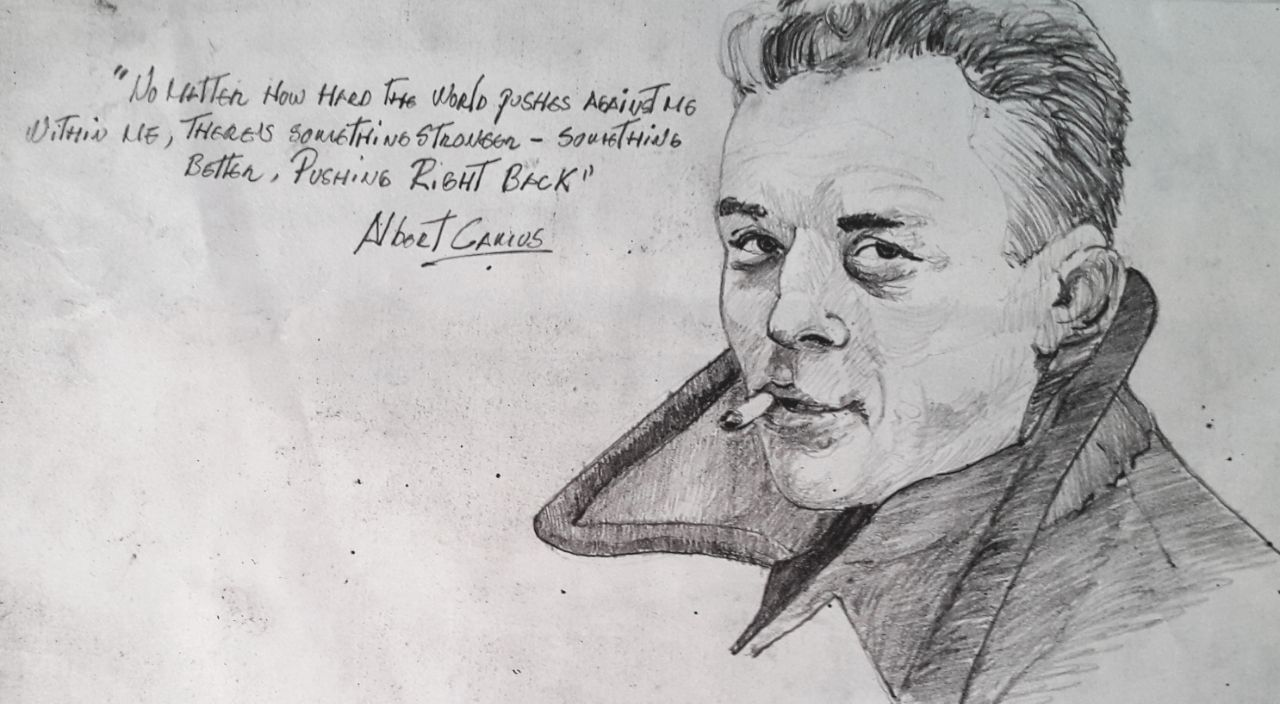 "No matter how hard the world pushes against me
within me, there's something stronger – something
better, pushing right back"
Albert Camus